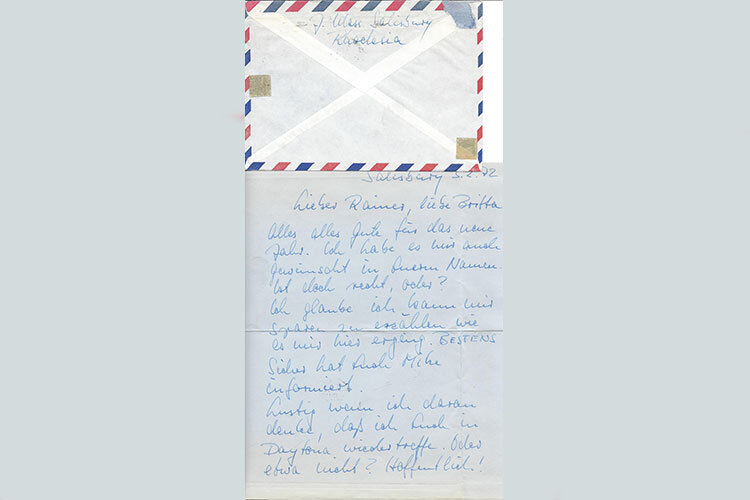 J. Mass Salisbury
Rhodesia
Salisbury 3.2.72
Lieber Rainer, liebe Britta
Alles alles Gute für das neue
Jahr. Ich habe es mir auch
gewünscht in Eurem Namen.
Ist doch recht, oder?
Ich glaube ich kann mir
sparen zu erzählen wie
es mir hier erging. BESTENS
Sicher hat Euch Mike
informiert.
Lustig wenn ich daran
denke, daß ich Euch in
Daytona wiedertreffe. Oder
etwa nicht? Hoffentlich!